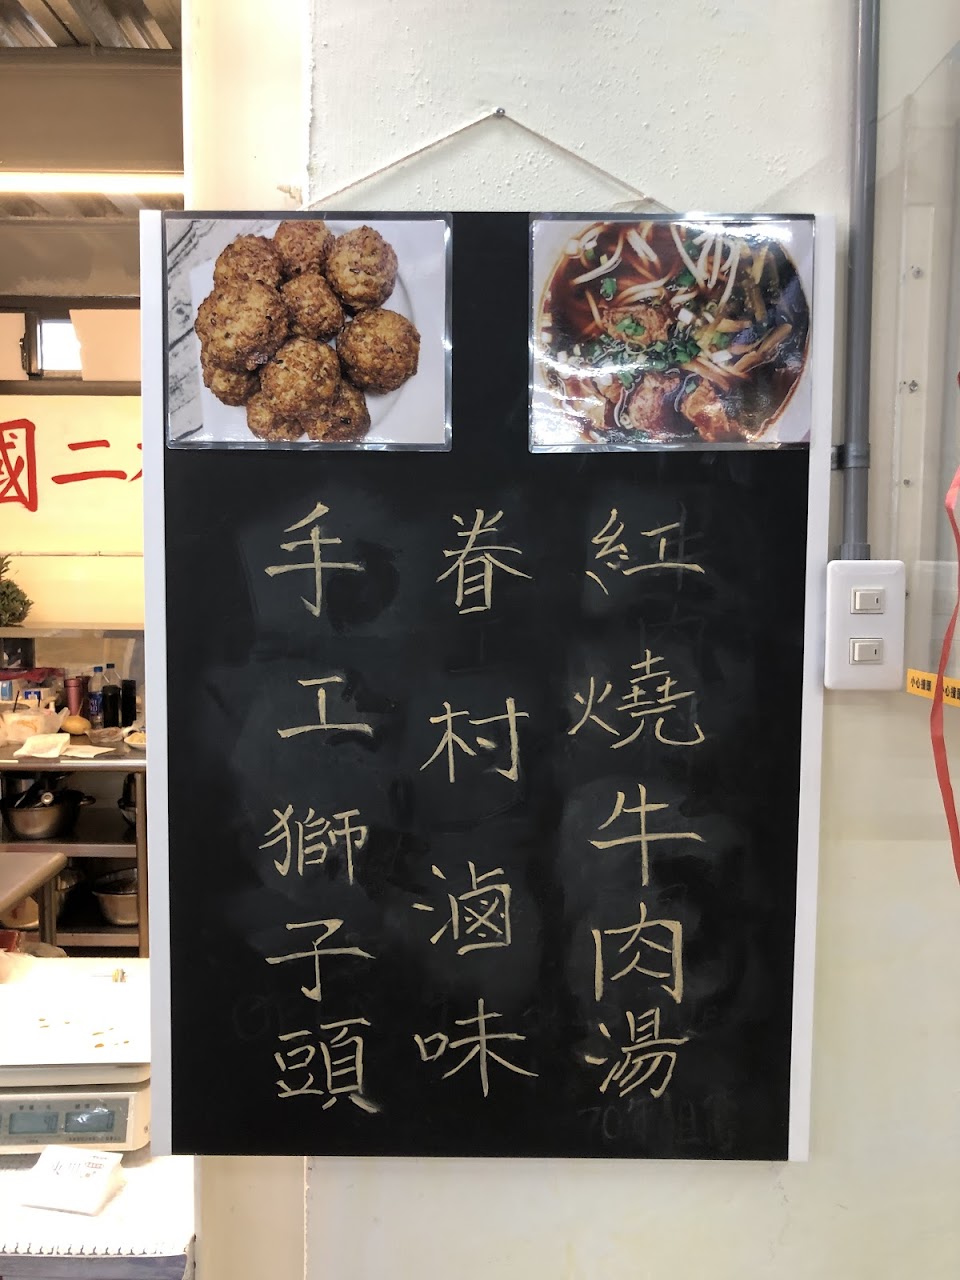 紅燒牛肉湯
眷村滷味
手工獅子頭
國二
小心撞頭